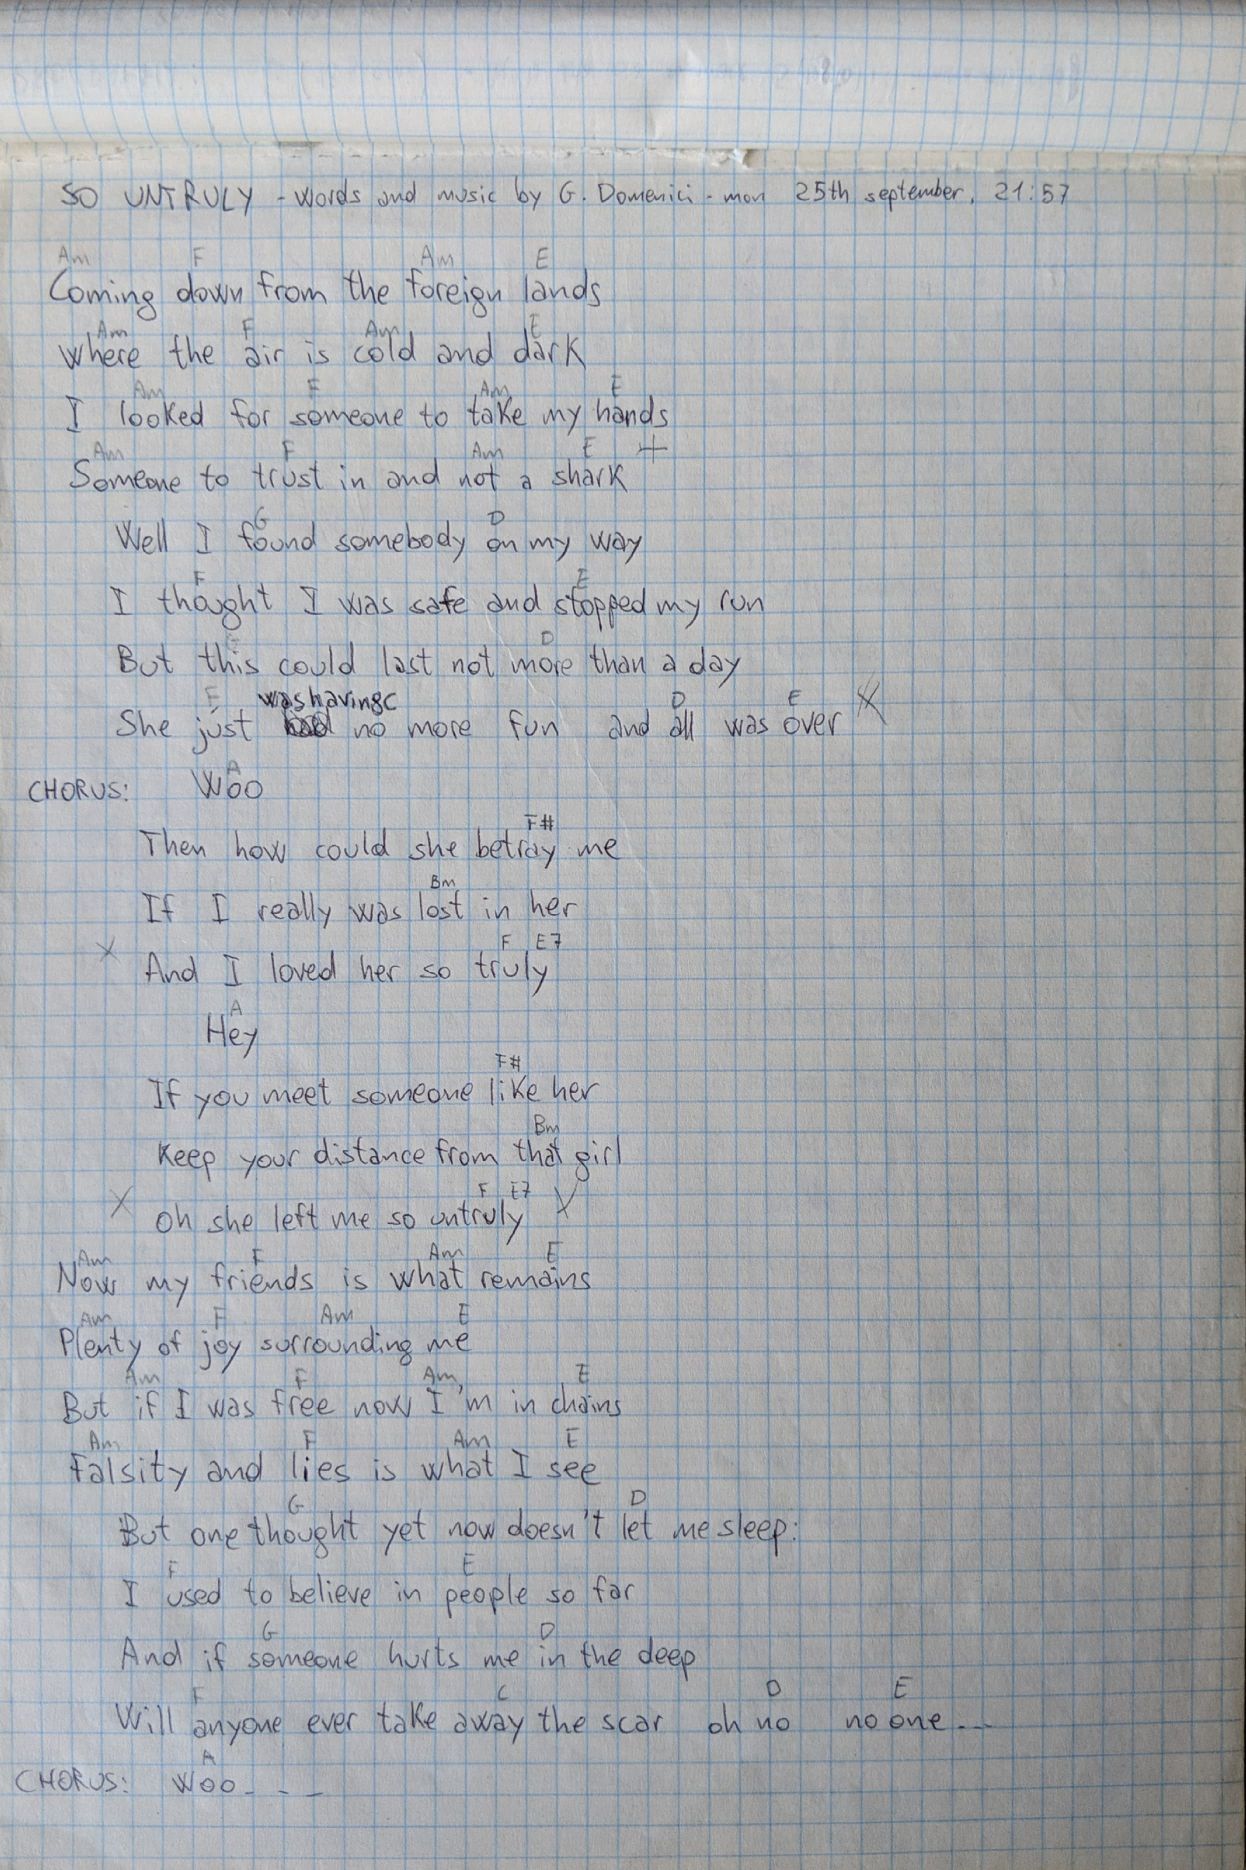 SO UNTRULY - words and music by G. Domenici - mon 25th september, 21:57
Am F Am E
Coming down from the foreign lands
Am F Am E
where the air is cold and dark
Am F Am E
I looked for someone to take my hands
Am F Am E +
Someone to trust in and not a shark
G D
Well I found somebody on my way
F E
I thought I was safe and stopped my run
G D
But this could last not more than a day
F was having C D E X
She just no more fun and all was over
A
CHORUS: Woo
F#
Then how could she betray me
Bm
If I really was lost in her
F E7
X And I loved her so truly
A
Hey
F#
If you meet someone like her
Bm
Keep your distance from that girl
F E7
X Oh she left me so untruly X
Am F Am E
Now my friends is what remains
Am F Am E
Plenty of joy surrounding me
Am F Am E
But if I was free now I'm in chains
Am F Am E
Falsity and lies is what I see
G D
But one thought yet now doesn't let me sleep:
F E
I used to believe in people so far
G D
And if someone hurts me in the deep
F C D E
Will anyone ever take away the scar oh no no one...
A
CHORUS: Woo - - -